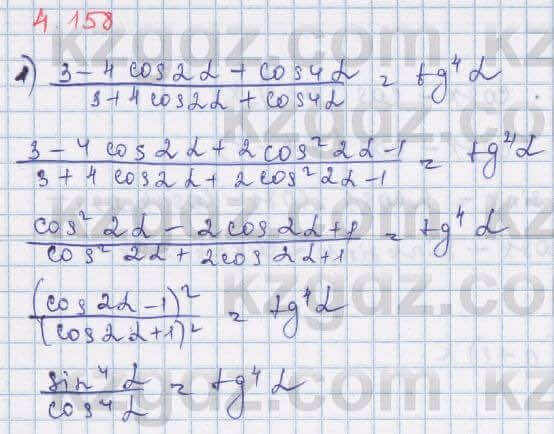 4 158
1) (3 - 4 cos2α + cos4α) / (3 + 4 cos2α + cos4α) = tg⁴ α
(3 - 4 cos 2α + 2 cos² 2α - 1) / (3 + 4 cos 2α + 2 cos² 2α - 1) = tg⁴ α
(cos² 2α - 2 cos 2α + 1) / (cos² 2α + 2 cos 2α + 1) = tg⁴ α
(cos 2α - 1)² / (cos 2α + 1)² = tg⁴ α
sin⁴ α / cos⁴ α = tg⁴ α
kzgdz.com
kzgdz.com
kzgdz.com
kzgdz.com